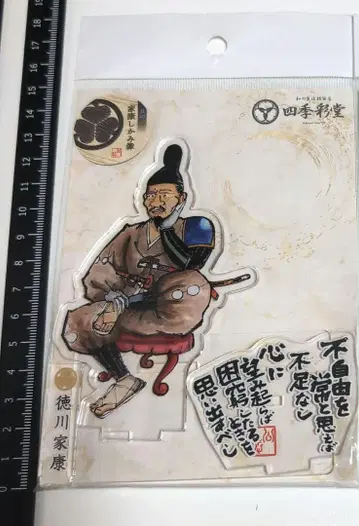 四季彩堂
家康しかみ像
徳川家康
不自由を
常と思えば
不足なし
心に
望み起らば
困窮したるときを
思い出すべし
19
18
17
16
15
14
13
12
11
10
9
8
7
6
5
4
3
2
1
0